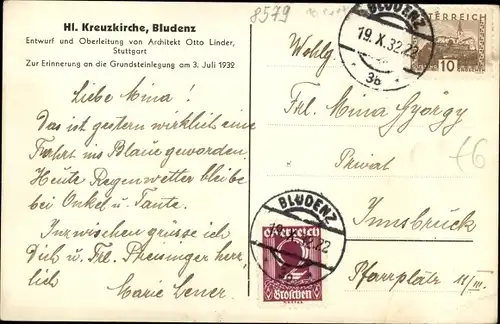 Hl. Kreuzkirche, Bludenz
Entwurf und Oberleitung von Architekt Otto Linder,
Stuttgart
Zur Erinnerung an die Grundsteinlegung am 3. Juli 1932
Liebe Mina!
Das ist gestern wirklich eine
Fahrt ins Blaue geworden.
Heute Regenwetter bleibe
bei Onkel u. Tante.
Inzwischen grüsse ich
Dich u. Frl. Preisinger herz,
lich
Marie Lener.
8579
BLUDENZ
19.X.32.22
3a
ÖSTERREICH
10 GROSCHEN
Wohlg.
Frl. Mina György
Privat
Innsbruck
Pfarrplatz 11/III.
£6
BLUDENZ
Österreich
2
Groschen